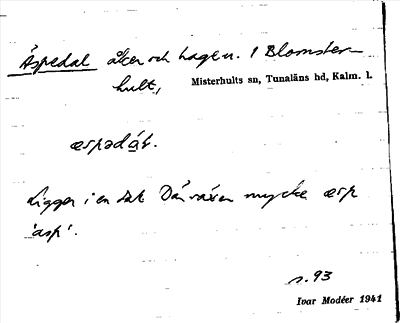 Äspedal åker och hage u. 1 Blomster-
hult,
Misterhults sn, Tunaläns hd, Kalm. l.
æspədát.
Ligger i en dal Där växer mycke æsp
'asp'.
s. 93
Ivar Modéer 1941